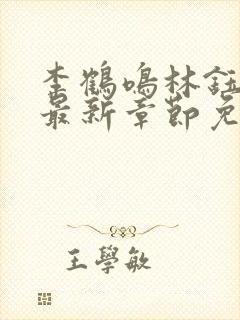 李鶴鳴林鈺
最新章節免
王學敏